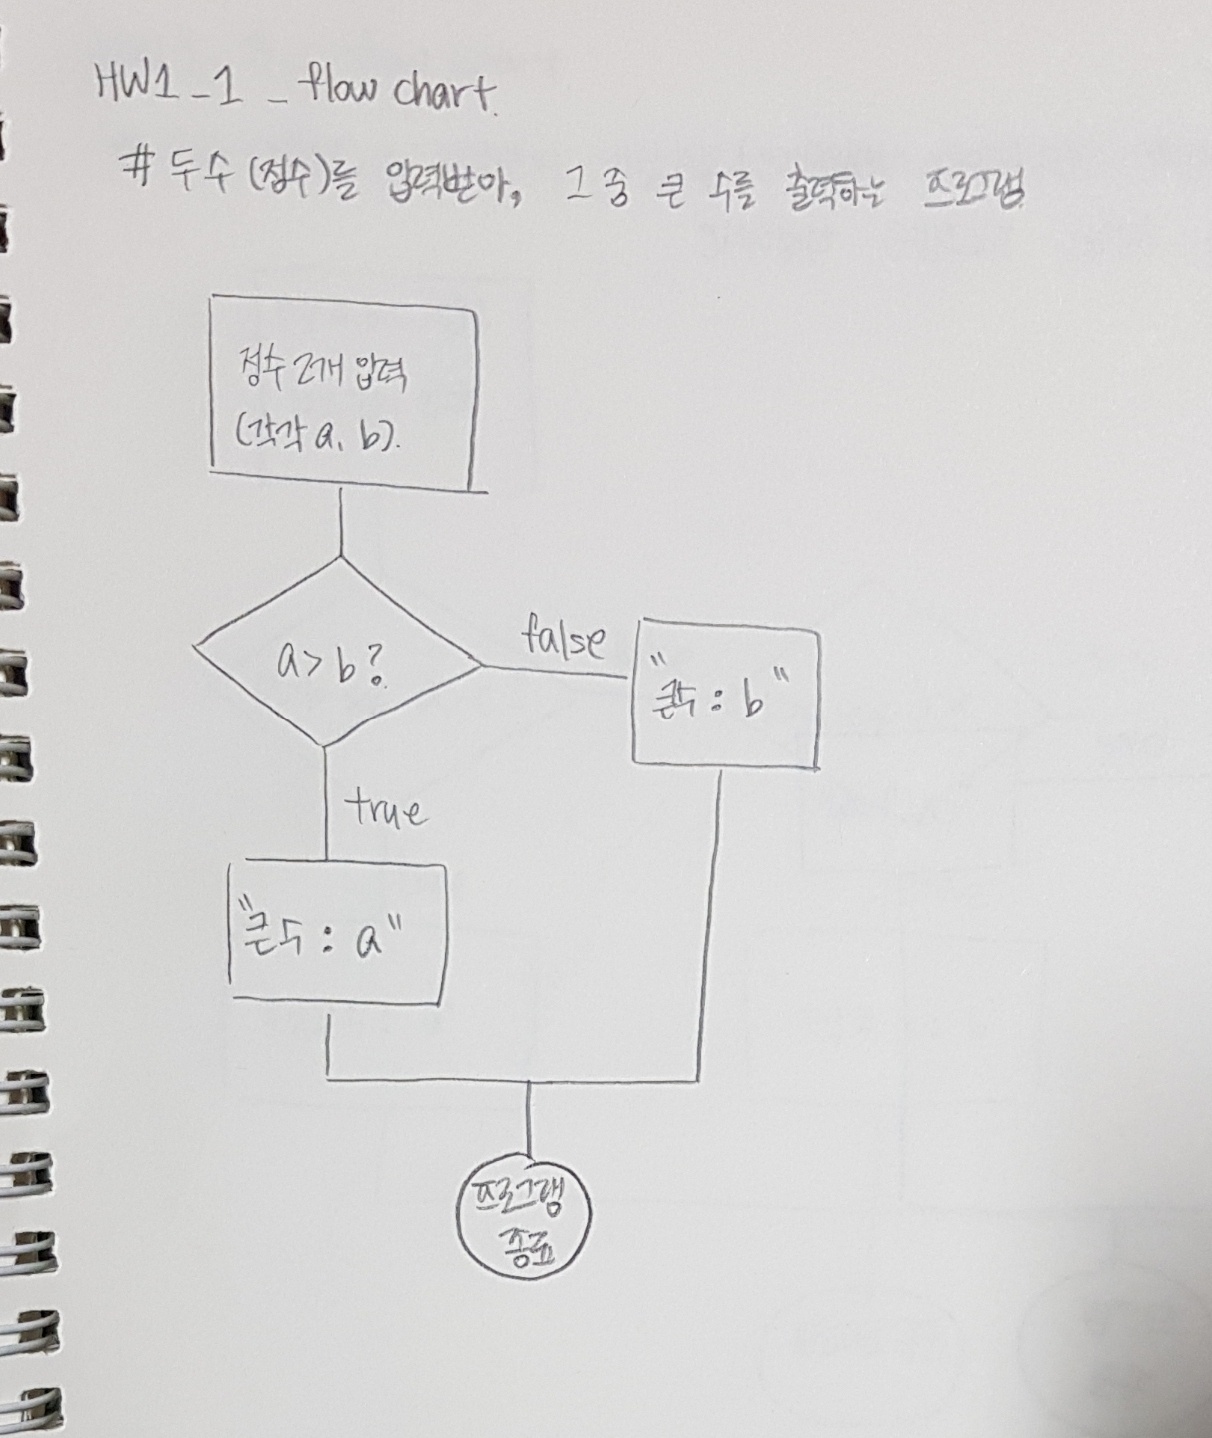 HW1_1_flow chart.
# 두수 (정수)를 입력받아, 그 중 큰 수를 출력하는 프로그램.
정수 2개 입력
(각각 a, b).
a > b?
false
"큰수 : b"
true
"큰수 : a"
프로그램
종료